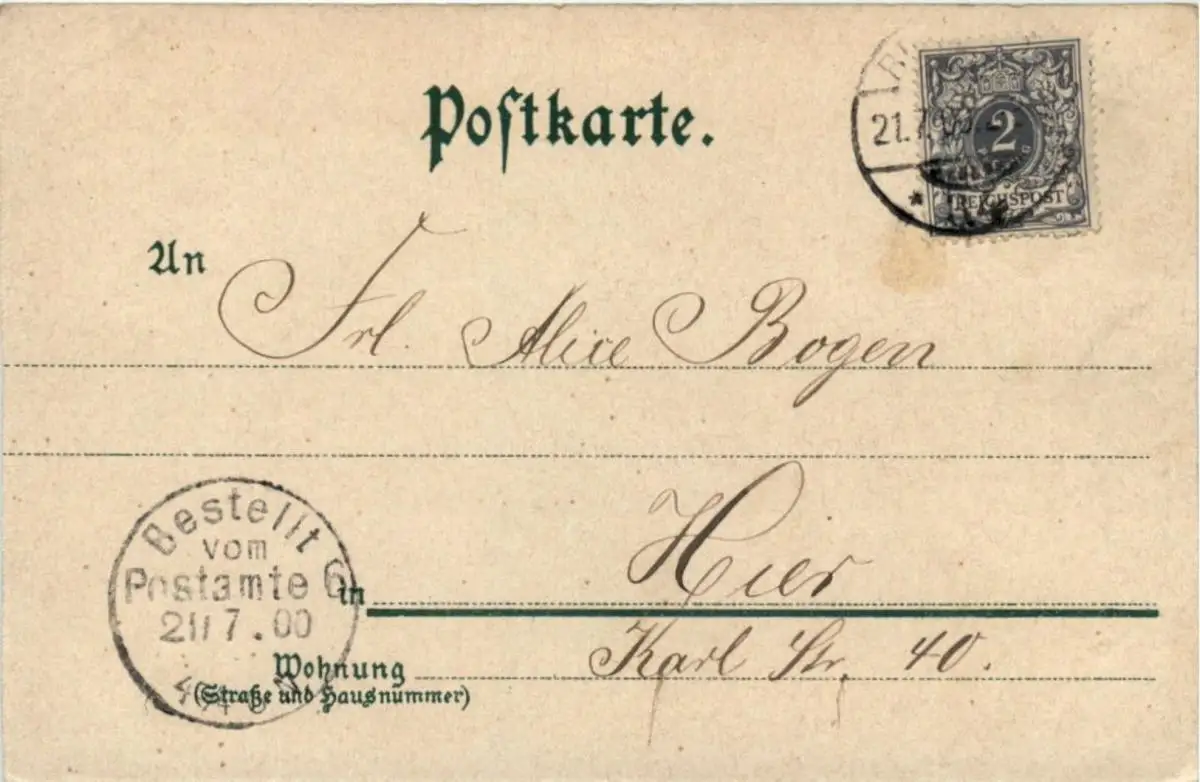 Postkarte.
21.7.
2
REICHSPOST
An
Frl. Alice Bogen
Hier
Bestellt
vom
Postamte 6
21/7.00
in
Karl Str. 40.
Wohnung
(Straße und Hausnummer)